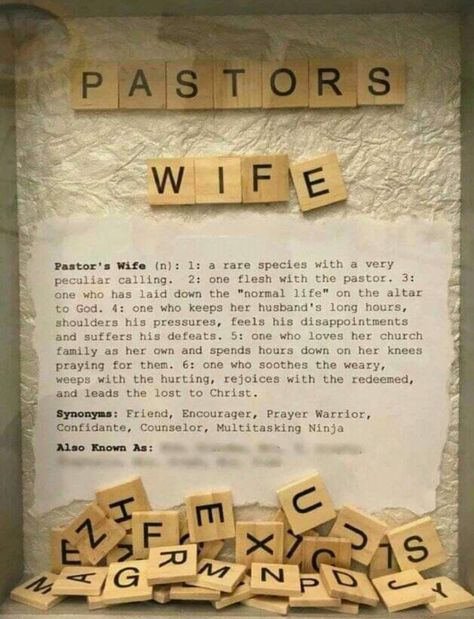 PASTORS
WIFE
Pastor's Wife (n): 1: a rare species with a very
peculiar calling. 2: one flesh with the pastor. 3:
one who has laid down the "normal life" on the altar
to God. 4: one who keeps her husband's long hours,
shoulders his pressures, feels his disappointments
and suffers his defeats. 5: one who loves her church
family as her own and spends hours down on her knees
praying for them. 6: one who soothes the weary,
weeps with the hurting, rejoices with the redeemed,
and leads the lost to Christ.
Synonyms: Friend, Encourager, Prayer Warrior,
Confidante, Counselor, Multitasking Ninja
Also Known As:
H E U
E Z F X U S
M A G R M N P D J Y